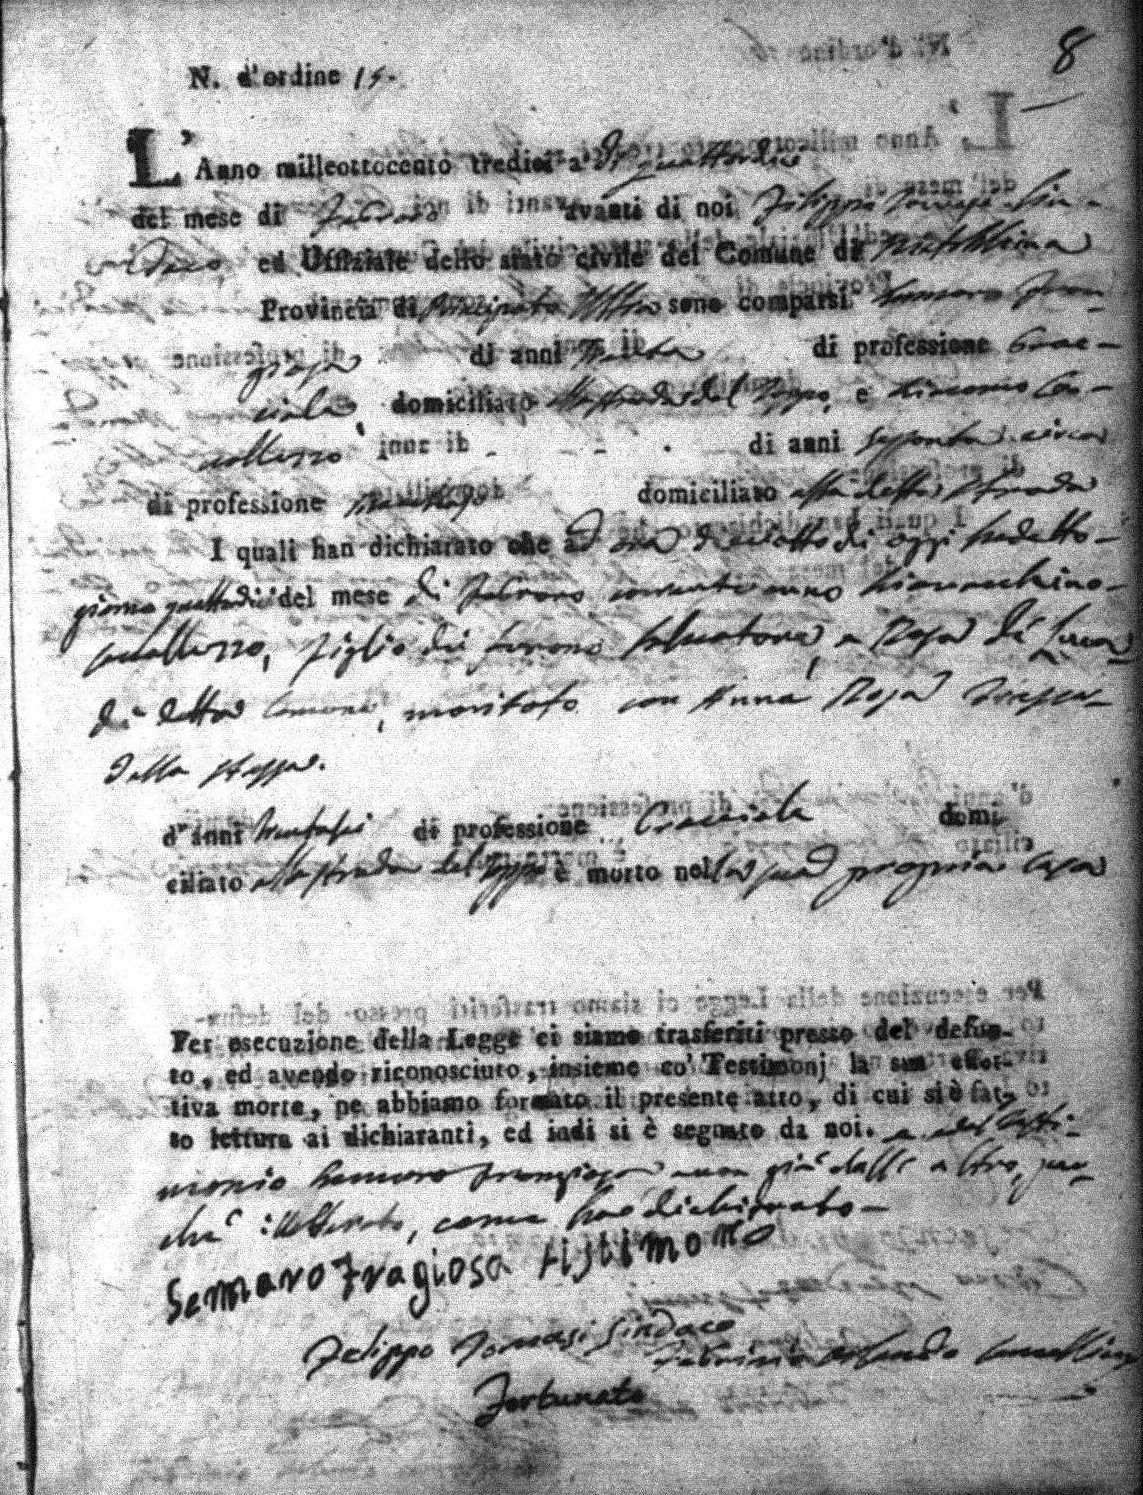 8
N. d'ordine 15.
L'Anno milleottocento tredici a' dì quattordici
del mese di Febraro avanti di noi Filippo Tomasi Sin-
daco, ed Uffiziale dello stato civile del Comune di
Provincia di Principato Ultra sono comparsi Gennaro Fran-
giosa di anni trenta di professione Brac-
ciale, domiciliato alla strada del Toppo, e Giacomo Ca-
vallazzo di anni sessanta circa
di professione domiciliato alla detta strada
I quali han dichiarato che ad ora diecotto di oggi sudetto
giorno quattordici del mese di Febraro corrente anno
Cavallazzo, figlio dei furono Salvatore, e Rosa di Lucca
di detta Comune, maritato con Anna Rosa
della stessa.
d'anni di professione Bracciale domi-
ciliato alla strada del Toppo è morto nella sua propria casa
Per esecuzione della Legge ci siamo trasferiti presso del defun-
to, ed avendo riconosciuto, insieme co' Testimonj la sua effet-
tiva morte, ne abbiamo formato il presente atto, di cui si è fat-
to lettura ai dichiaranti, ed indi si è segnato da noi. e dal testi-
monio Gennaro Frangiosa non già dall' altro, per-
che illetterato, come ha dichiarato
Gennaro Fragiosa tistimono
Felippo Tomasi Sindaco
Fortunato